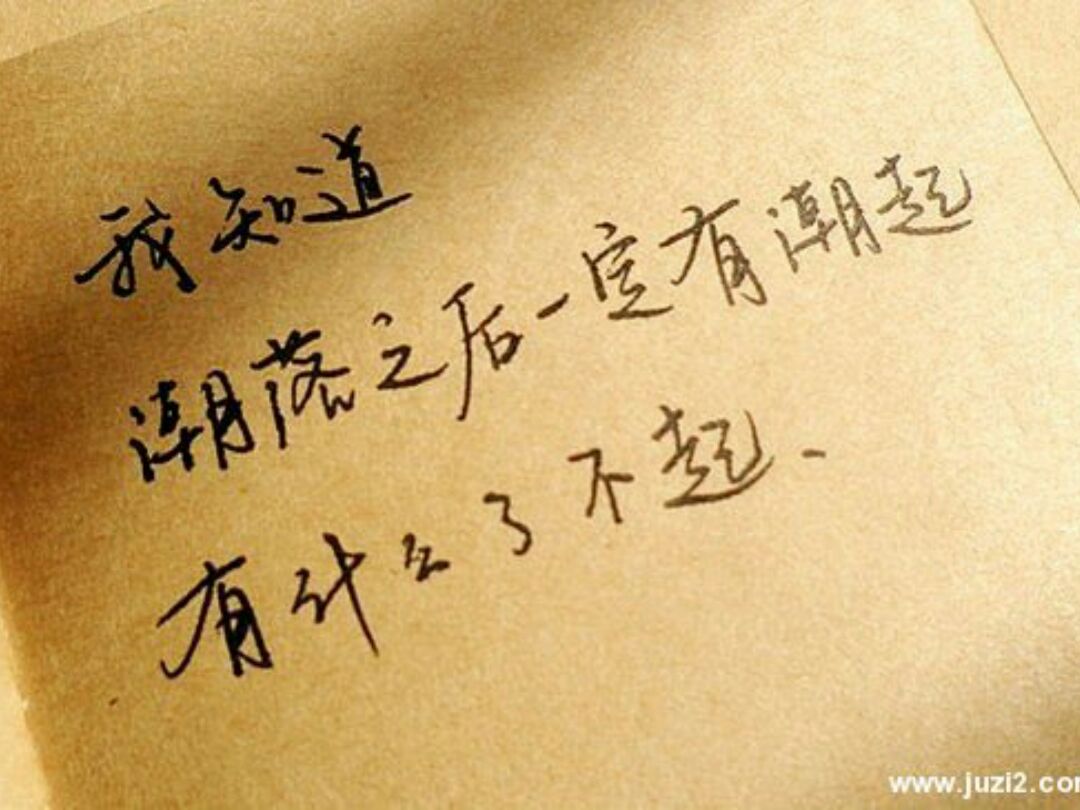 我知道
潮落之后一定有潮起
有什么了不起.
www.juzi2.com